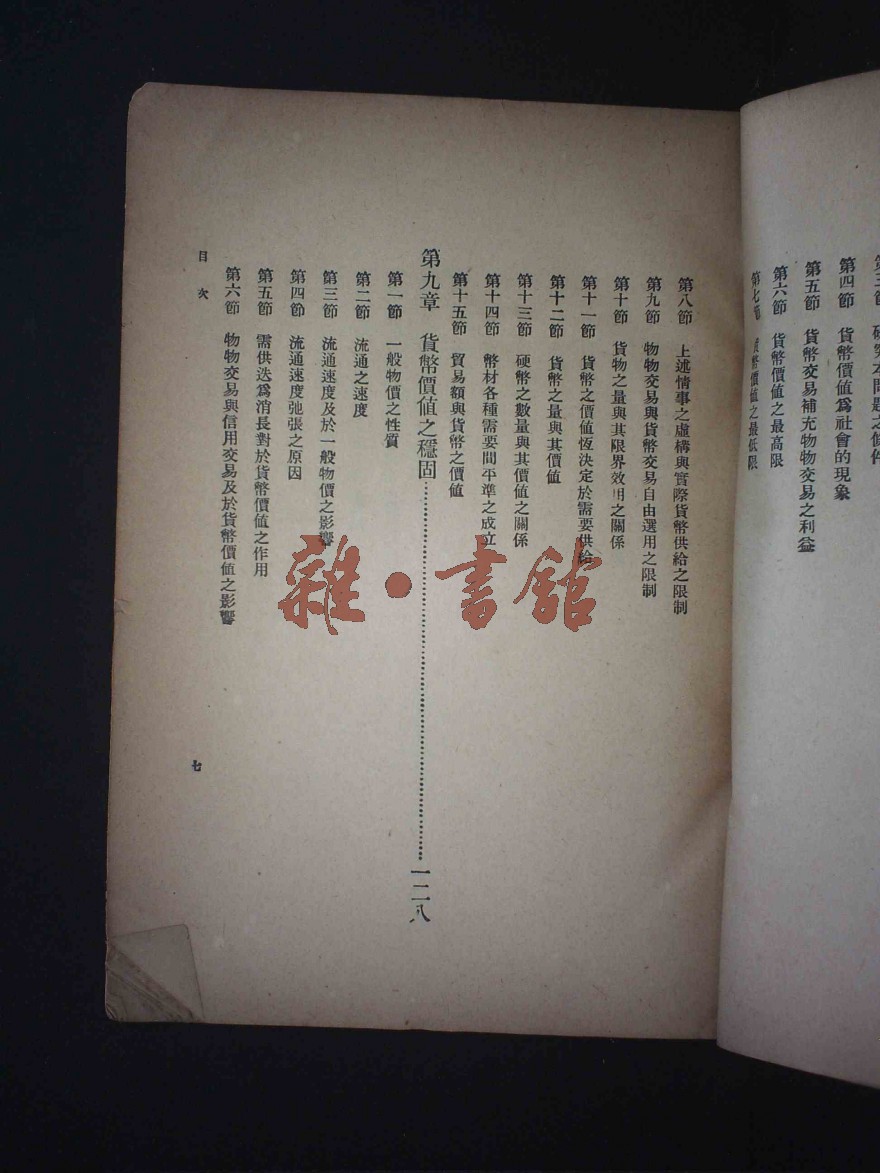 第四節　貨幣價値爲社會的現象
第五節　貨幣交易補充物物交易之利益
第六節　貨幣價値之最高限
第七節　貨幣價値之最低限
第八節　上述情事之虛構與實際貨幣供給之限制
第九節　物物交易與貨幣交易自由選用之限制
第十節　貨物之量與其限界效用之關係
第十一節　貨幣之價値恆決定於需要供給
第十二節　貨幣之量與其價値
第十三節　硬幣之數量與其價値之關係
第十四節　幣材各種需要間平準之成立
第十五節　貿易額與貨幣之價値
第九章　貨幣價値之穩固……一二八
第一節　一般物價之性質
第二節　流通之速度
第三節　流通速度及於一般物價之影響
第四節　流通速度弛張之原因
第五節　需供迭爲消長對於貨幣價値之作用
第六節　物物交易與信用交易及於貨幣價値之影響
目次
七
雜·書館